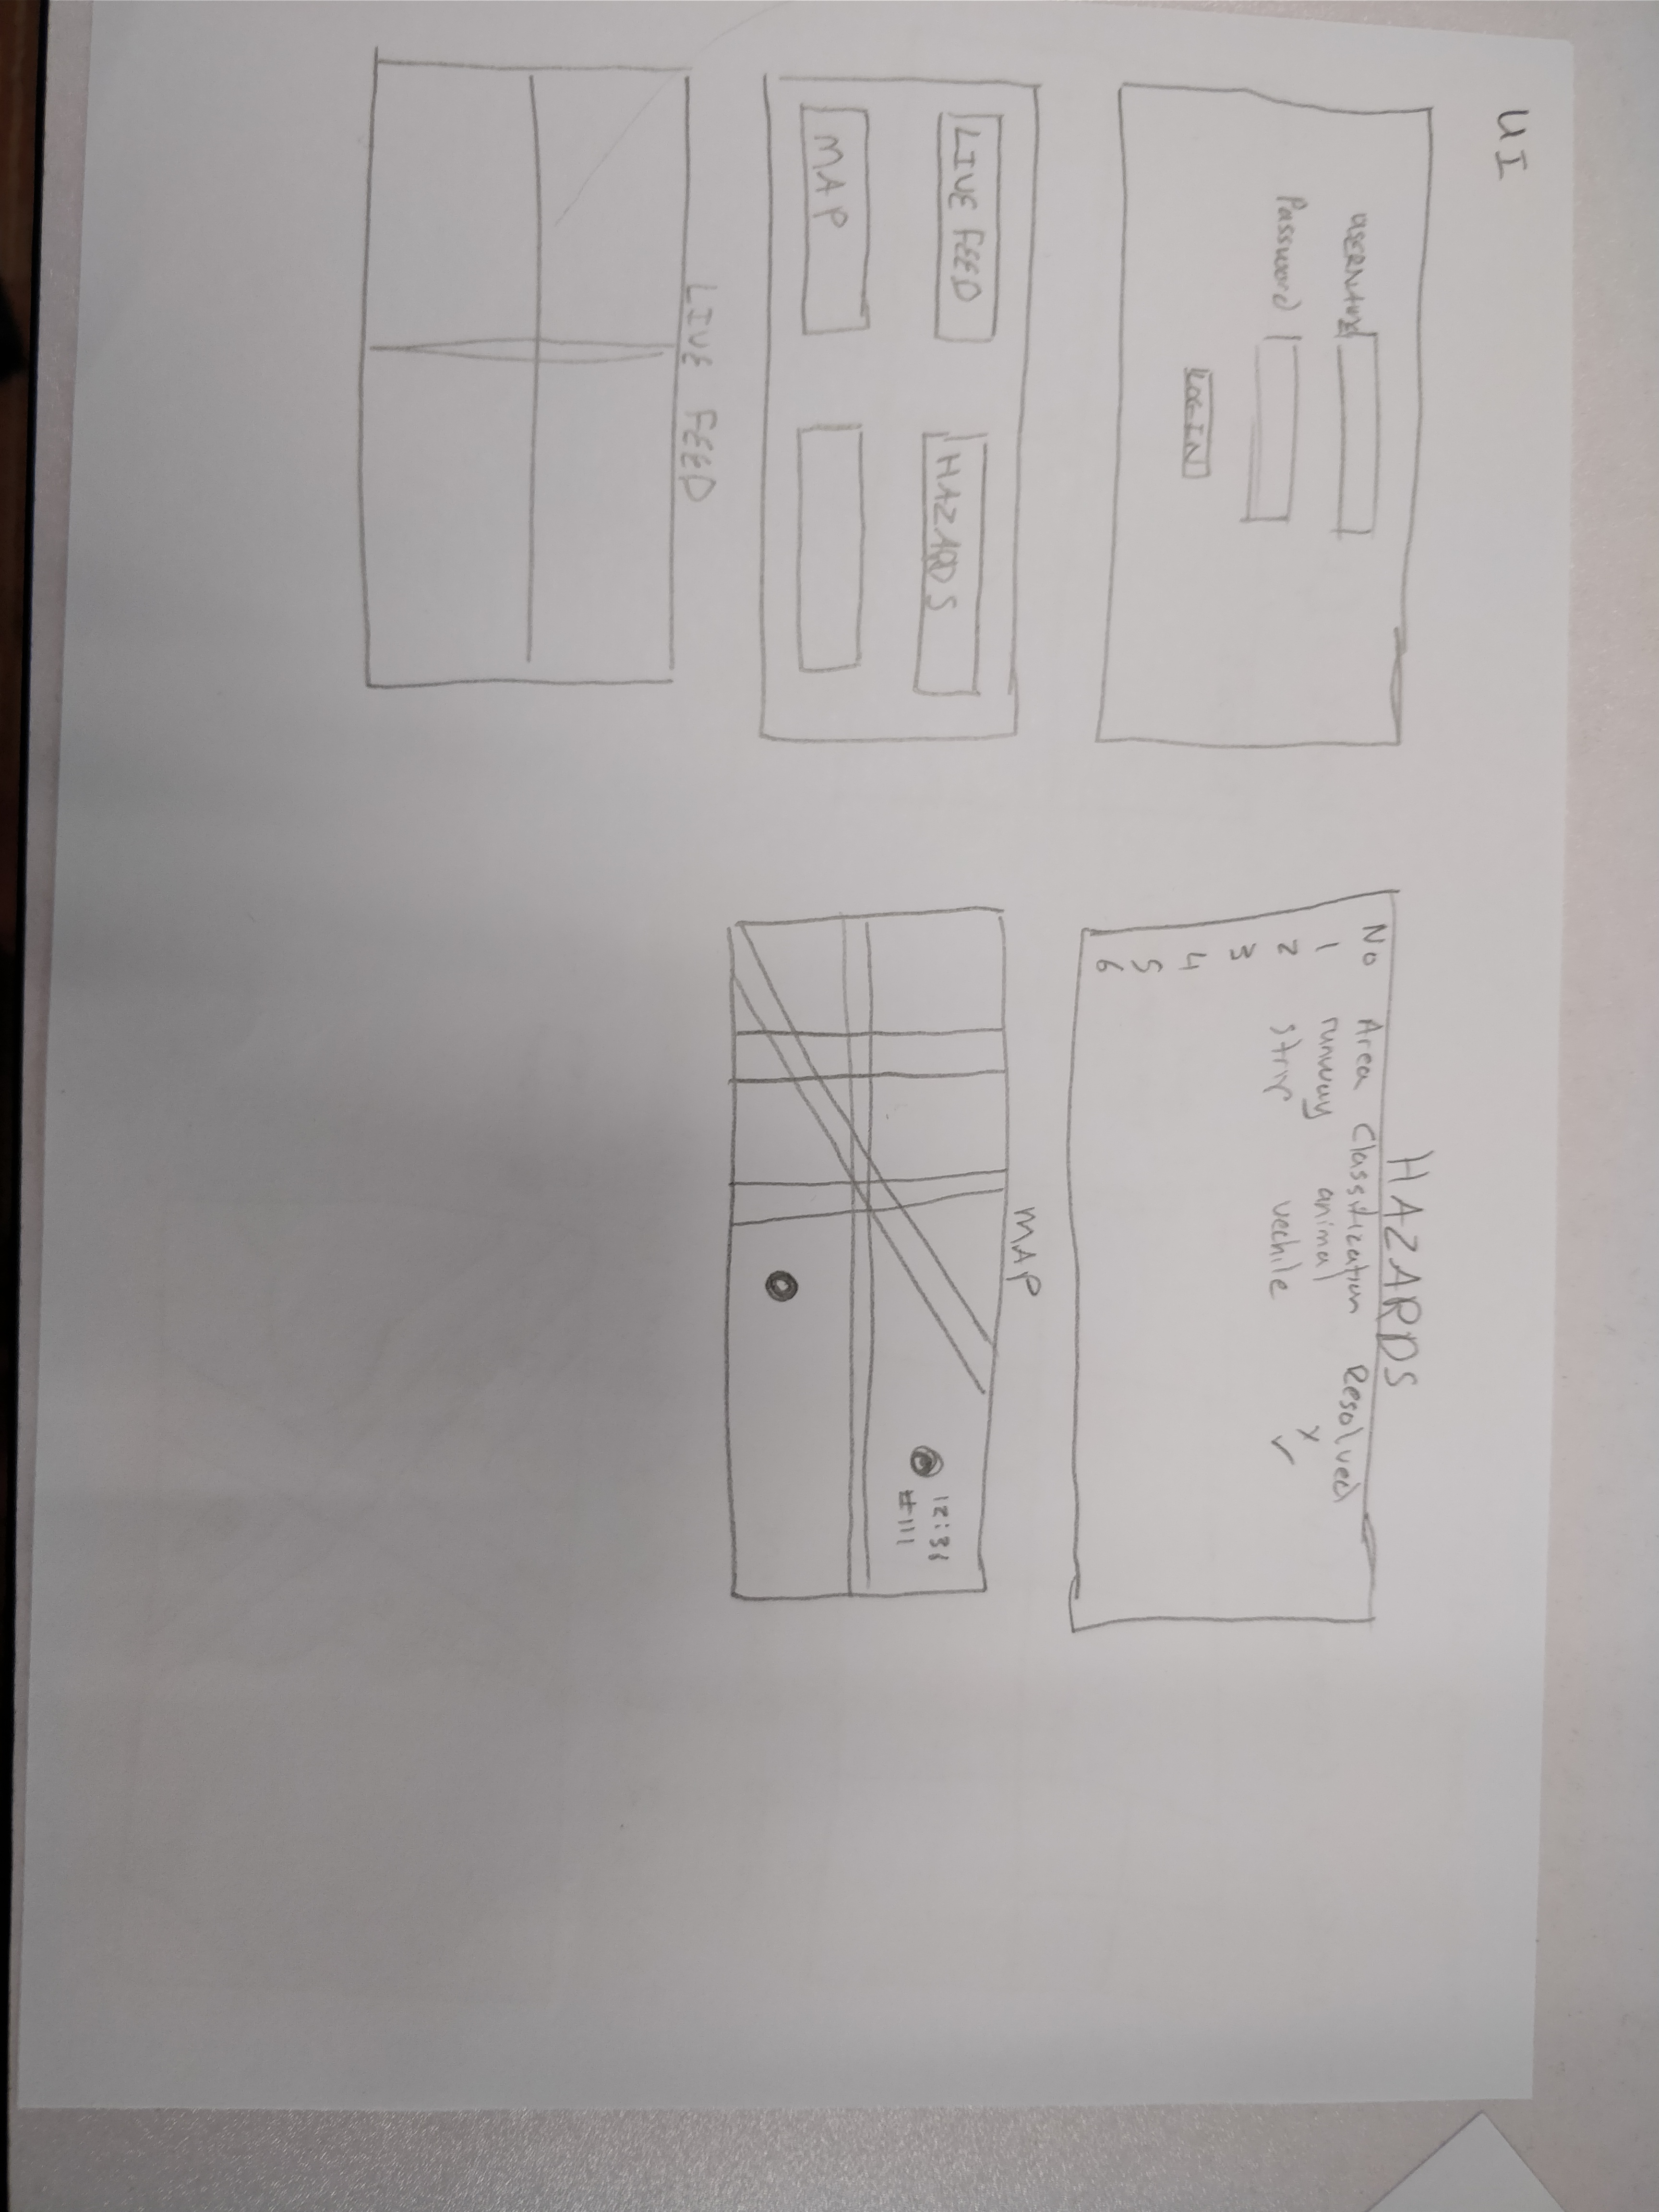 UI
USERNAME
Password
LOGIN
LIVE FEED
HAZARDS
MAP
LIVE FEED
HAZARDS
No Area Classification Resolved
1 runway animal x
2 strip vechile ✓
3
4
5
6
MAP
#111